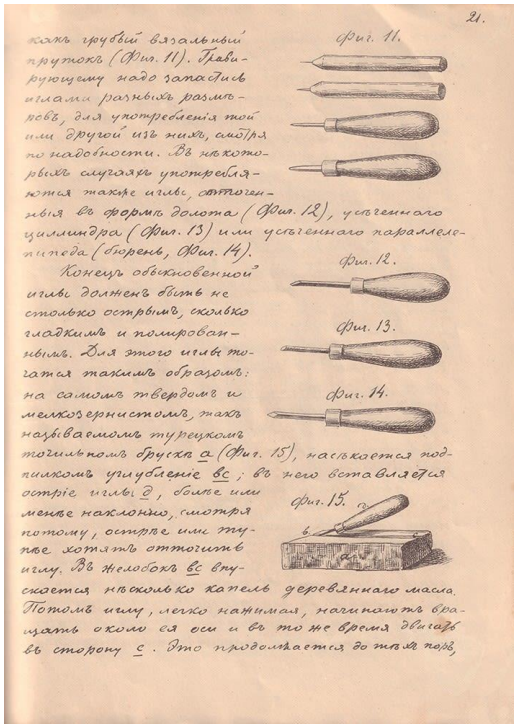 21.
какъ грубый вязальный
Фиг. 11.
прутокъ (Фиг. 11). Грави-
рующему надо запастись
иглами разныхъ размѣ-
ровъ, для употребленія той
или другой изъ нихъ, смотря
по надобности. Въ нѣкото-
рыхъ случаяхъ употребля-
ются также иглы, отточен-
ныя въ формѣ долота (Фиг. 12), усѣченнаго
цилиндра (Фиг. 13) или усѣченнаго параллеле-
пипеда (бюрень, Фиг. 14).
Конецъ обыкновенной
Фиг. 12.
иглы долженъ быть не
столько острымъ, сколько
гладкимъ и полирован-
Фиг. 13.
нымъ. Для этого иглы то-
чатся такимъ образомъ:
на самомъ твердомъ и
Фиг. 14.
мелкозернистомъ, такъ
называемомъ турецкомъ
точильномъ брускѣ а (Фиг. 15), насѣкается под-
пилкомъ углубленіе вс; въ него вставляется
остріе иглы д, болѣе или
Фиг. 15.
менѣе наклонно, смотря
потому, острѣе или ту-
в
пѣе хотятъ отточить
а
иглу. Въ желобокъ вс впу-
скается нѣсколько капель деревяннаго масла.
Потомъ иглу, легко нажимая, начинаютъ вра-
щать около ея оси и въ то же время двигать
въ сторону с. Это продолжается до тѣхъ поръ,